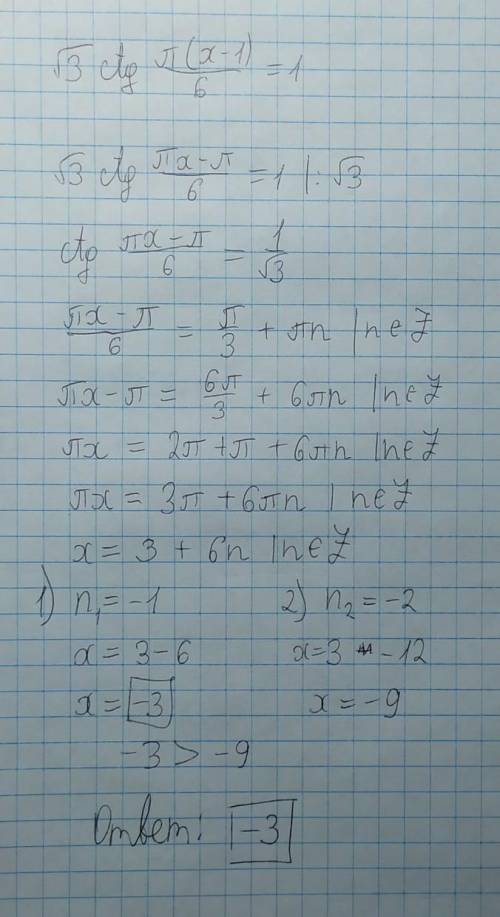 √3 ctg π(x-1)/6 = 1
√3 ctg (πx-π)/6 = 1 |:√3
ctg (πx-π)/6 = 1/√3
(πx-π)/6 = π/3 + πn | n∈Z
πx-π = 6π/3 + 6πn | n∈Z
πx = 2π+π + 6πn | n∈Z
πx = 3π + 6πn | n∈Z
x = 3 + 6n | n∈Z
1) n₁ = -1 2) n₂ = -2
x = 3-6 x=3 -12
x = -3 x = -9
-3 > -9
Ответ: -3